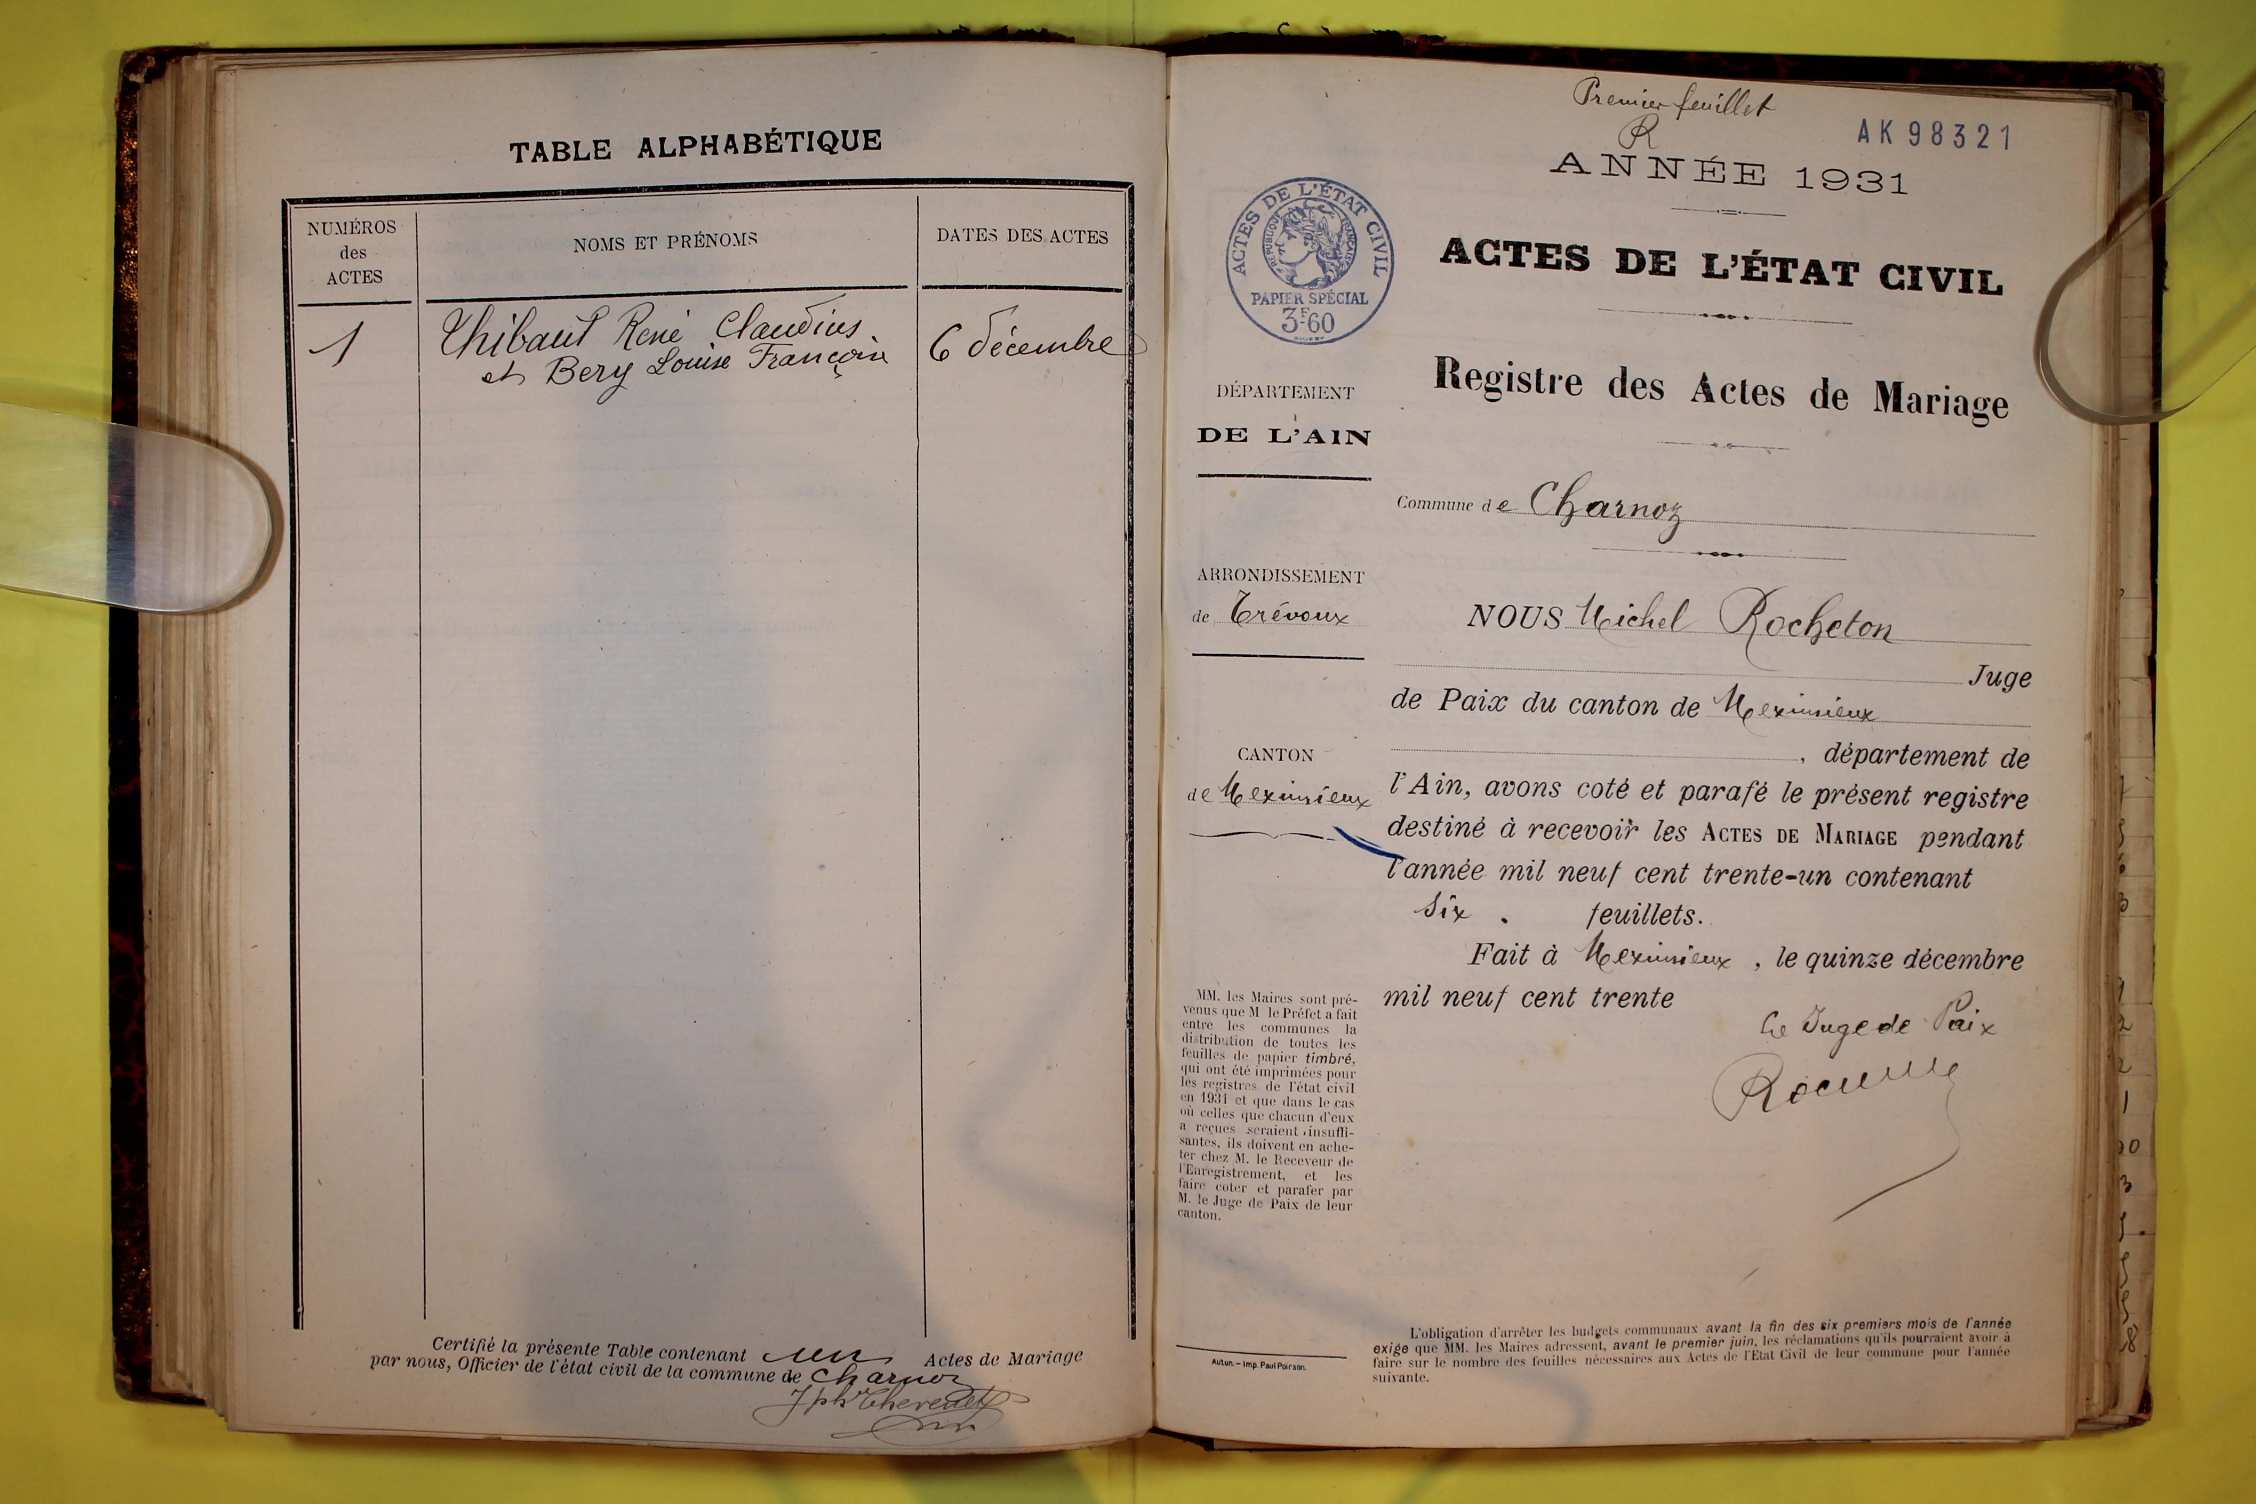 TABLE ALPHABÉTIQUE
NUMÉROS
des
ACTES
NOMS ET PRÉNOMS
DATES DES ACTES
1
Thibaut René Claudius
et Bery Louise Françoise
6 décembre
Certifié la présente Table contenant un Actes de Mariage
par nous, Officier de l'état civil de la commune de Charnoz
Jph Thevenet
Premier feuillet
R
AK 98321
ANNÉE 1931
ACTES DE L'ÉTAT CIVIL
RÉPUBLIQUE FRANÇAISE
PAPIER SPÉCIAL
3F60
ACTES DE L'ÉTAT CIVIL
Registre des Actes de Mariage
DÉPARTEMENT
DE L'AIN
Commune de Charnoz
ARRONDISSEMENT
de Trévoux
NOUS Michel Rocheton
Juge
de Paix du canton de Meximieux
, département de
CANTON
de Meximieux
l'Ain, avons coté et parafé le présent registre
destiné à recevoir les ACTES DE MARIAGE pendant
l'année mil neuf cent trente-un contenant
six . feuillets.
Fait à Meximieux, le quinze décembre
mil neuf cent trente
Le Juge de Paix
MM. les Maires sont pré-
venus que M le Préfet a fait
entre les communes la
distribution de toutes les
feuilles de papier timbré,
qui ont été imprimées pour
les registres de l'état civil
en 1931 et que dans le cas
où celles que chacun d'eux
a reçues seraient insuffi-
santes, ils doivent en ache-
ter chez M. le Receveur de
l'Enregistrement, et les
faire coter et parafer par
M. le Juge de Paix de leur
canton.
Autun. – Imp. Paul Poirson.
L'obligation d'arrêter les budgets communaux avant la fin des six premiers mois de l'année
exige que MM. les Maires adressent, avant le premier juin, les réclamations qu'ils pourraient avoir à
faire sur le nombre des feuilles nécessaires aux Actes de l'Etat Civil de leur commune pour l'année
suivante.